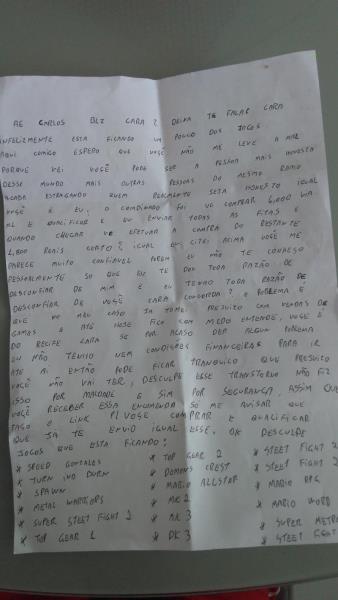 AE CARLOS BLZ CARA? DEIXA TE FALAR CARA
INFELIZMENTE ESTA FICANDO UM POUCO DOS JOGOS
AQUI COMIGO ESPERO QUE VOCÊ NÃO ME LEVE A MAL
PORQUE VEI VOCÊ PODE SER A PESSOA MAIS HONESTA
DESSE MUNDO MAIS OUTRAS PESSOAS DO MESMO RAMO
ACABA ESTRAGANDO QUEM REALMENTE SEJA HONESTO IGUAL
VOCÊ E EU, O COMBINADO FOI VC COMPRAR 6,000 NA
ML E QUALIFICAR E EU ENVIAR TODAS AS FITAS E
QUANDO CHEGAR VC EFETUAR A COMPRA DO RESTANTE
1,800 REAIS CERTO? IGUAL EU CITEI ACIMA VOCÊ ME
PARECE MUITO CONFIAVEL POREM EU NÃO TE CONHEÇO
PESSOALMENTE SO QUE EU TE DOU TODA RAZÃO DE
DESCONFIAR DE MIM E EU TENHO TODA RAZÃO DE
DESCONFIAR DE VOÇÊ CARA CONCORDA? O PROBLEMA É
QUE NO MEU CASO JA TOMEI PREJUIZO COM VENDAS DE
GAMES E ATE HOJE FICO COM MEDO ENTENDE, VOÇE É
DO RECIFE CARA SE POR ACASO DER ALGUM PROBLEMA
EU NÃO TENHO NEM CONDIÇÕES FINANCEIRAS PARA IR
ATE AI ENTÃO PODE FICAR TRANQUILO QUE PREJUIZO
VOCÊ NÃO VAI TER, DESCULPE ESSE TRANSTORNO NÃO FIZ
ISSO POR MALDADE E SIM POR SEGURANÇA, ASSIM QUE
VOÇÊ RECEBER ESSA ENCOMENDA SÓ ME AVISAR QUE
FAÇO O LINK P/ VOCÊ COMPRAR E QUALIFICAR
QUE JA TE ENVIO IGUAL ESSE, OK DESCULPE
JOGOS QUE ESTA FICANDO:
* SPEED GONZALES
* TURN AND BURN
* SPAWN
* METAL WARRIORS
* SUPER STEET FIGHT 2
* TOP GEAR 1
* TOP GEAR 2
* DEMONS CREST
* MARIO ALLSTAR
* MK 2
* MK 3
* DK 3
* STEET FIGHT 2
* STEET FIGHT
* MARIO RPG
* MARIO WORD
* SUPER METRO
* STEET FIGHT